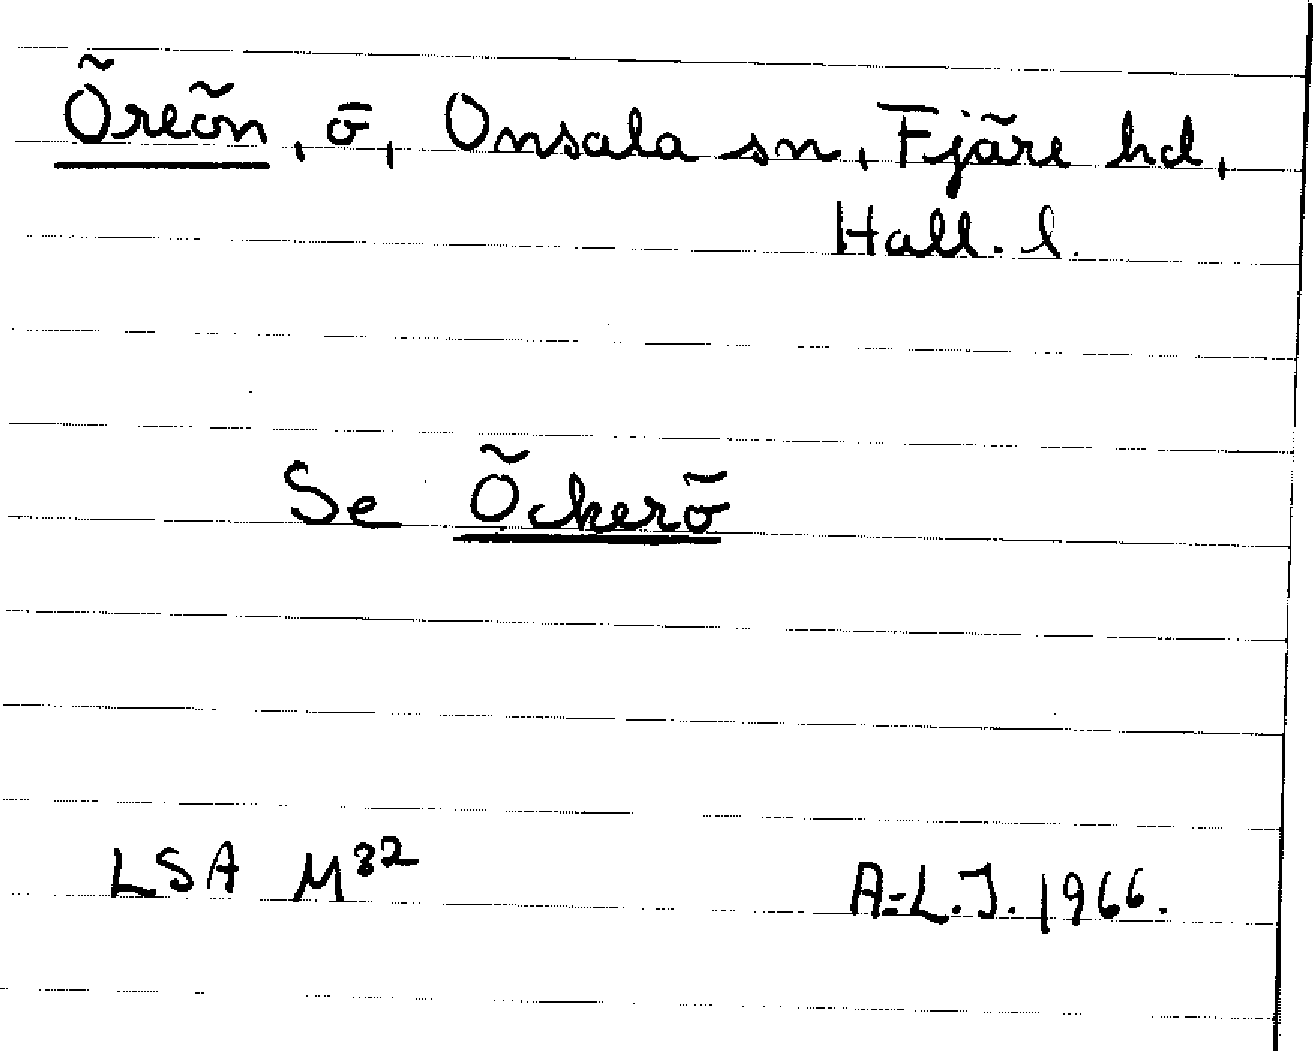 Öreön, ö, Onsala sn, Fjäre hd,
Hall. l.
Se Öckerö
LSA M³² A-L.J. 1966.